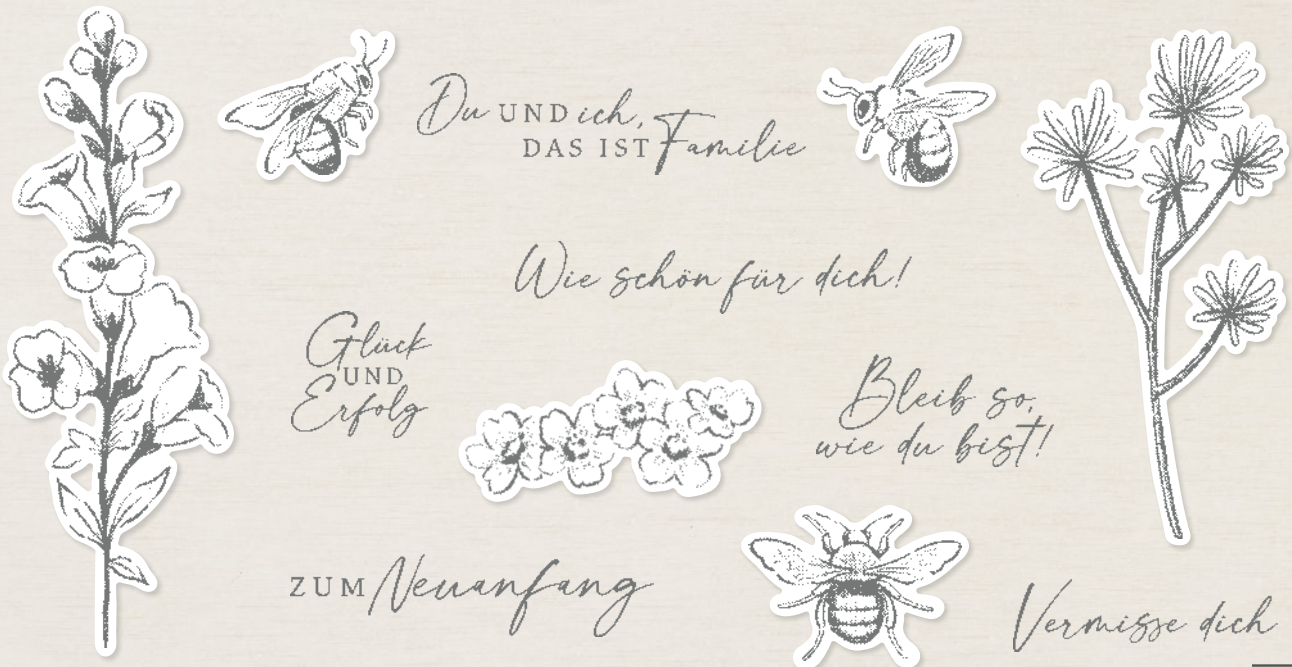 Du UND ich,
DAS IST Familie
Wie schön für dich!
Glück
UND
Erfolg
Bleib so,
wie du bist!
ZUM Neuanfang
Vermisse dich